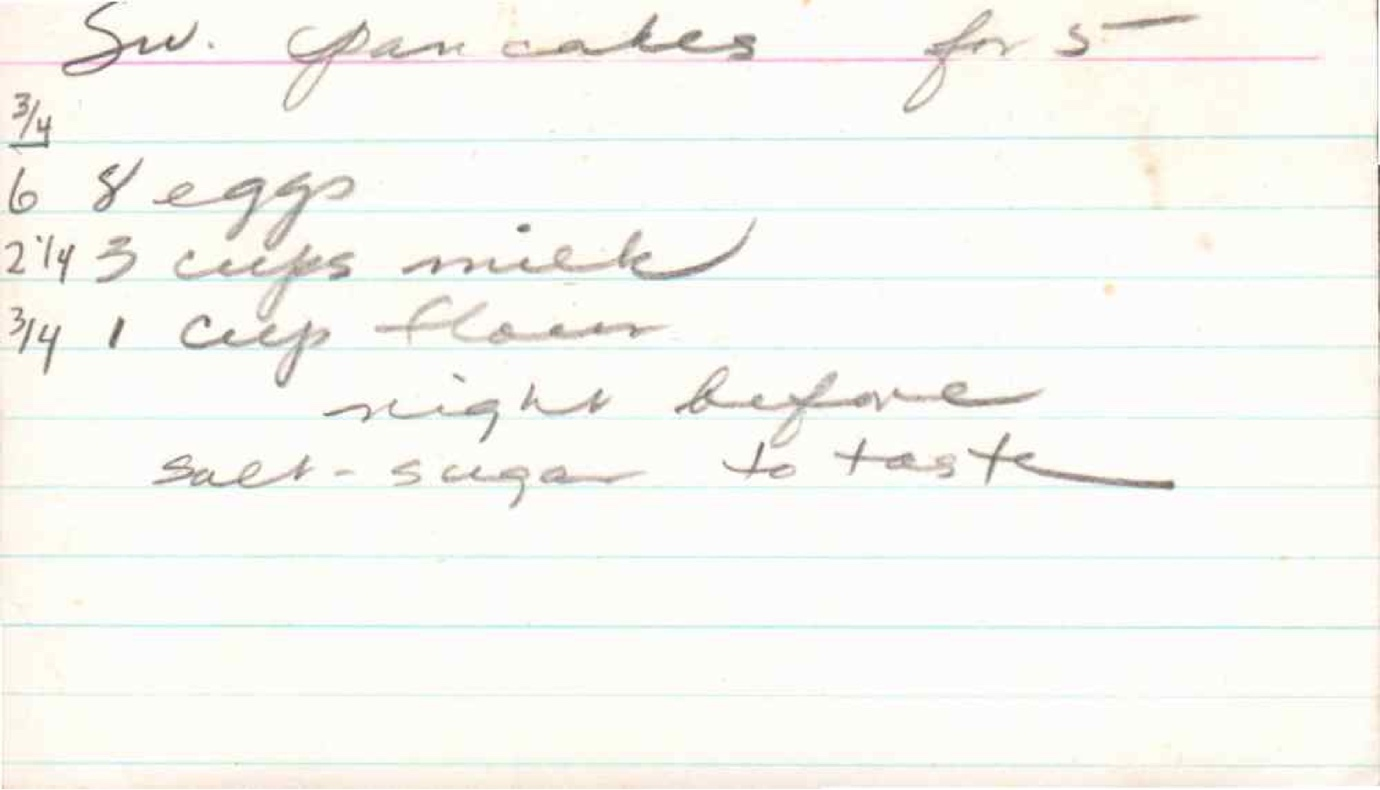 Sw. Pancakes for 5
3/4
6 8 eggs
2 1/4 3 cups milk
3/4 1 cup flour
night before
salt - sugar to taste